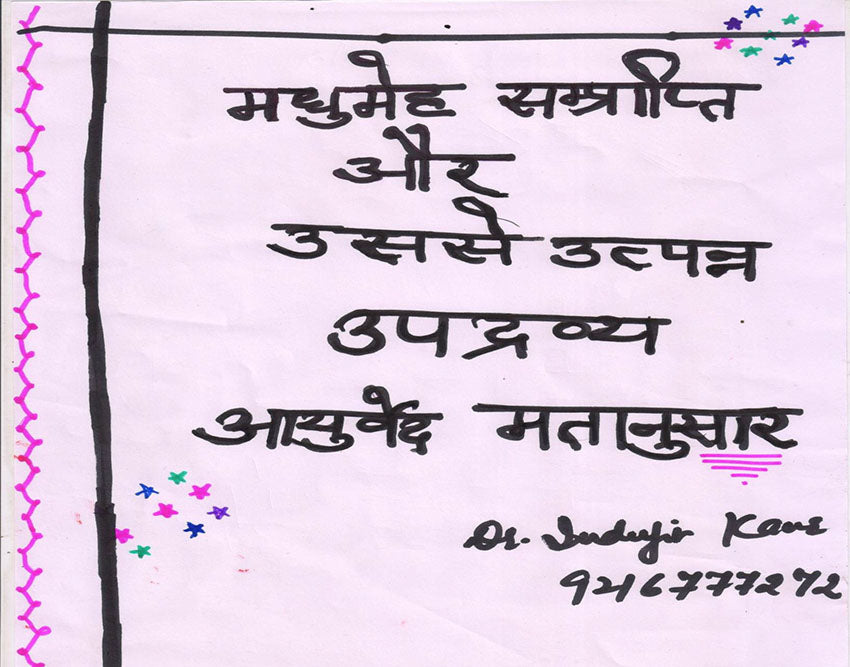 मधुमेह सम्प्राप्ति
और
उससे उत्पन्न
उपद्रव्य
आयुर्वेद मतानुसार
Dr. Kaur
9216777272